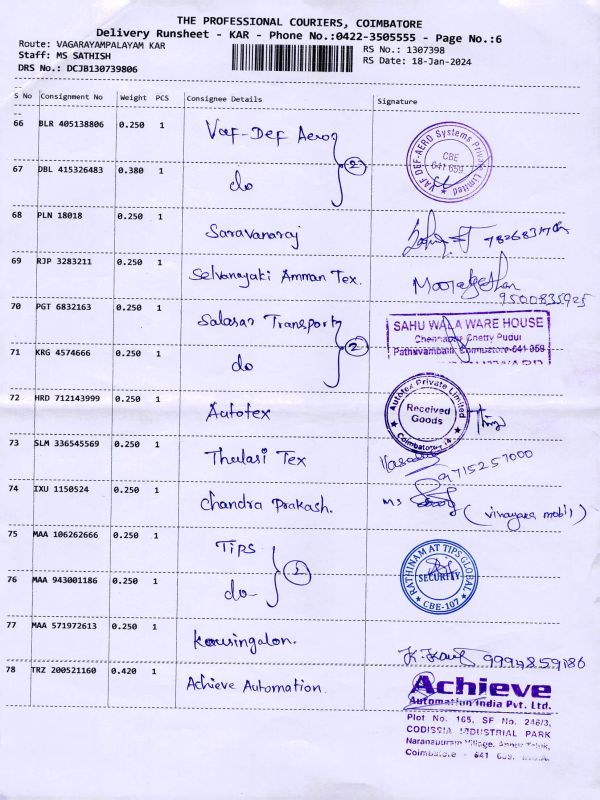 THE PROFESSIONAL COURIERS, COIMBATORE
Delivery Runsheet - KAR - Phone No.:0422-3505555 - Page No.:6
Route: VAGARAYAMPALAYAM KAR
RS No.: 1307398
Staff: MS SATHISH
RS Date: 18-Jan-2024
DRS No.: DCJB130739806
S No Consignment No Weight PCS Consignee Details Signature
66 BLR 405138806 0.250 1 Vaf-Def Aero
VAF DEF-AERO Systems Private Limited
CBE
641 659
67 DBL 415326483 0.380 1 do
2
68 PLN 18018 0.250 1 Saravanaraj
69 RJP 3283211 0.250 1 Selvanayaki Amman Tex.
9500835925
70 PGT 6832163 0.250 1 Salasar Transport
SAHU WALA WARE HOUSE
Chetty Pudur
Coimbatore-641 659
71 KRG 4574666 0.250 1 do
2
72 HRD 712143999 0.250 1 Autotex
Autotex Private Limited
Received
Goods
Coimbatore
73 SLM 336545569 0.250 1 Thulasi Tex
9715257000
74 IXU 1150524 0.250 1 Chandra Prakash.
MS
75 MAA 106262666 0.250 1 TIPS
RATHINAM AT TIPS GLOBAL
SECURITY
CBE-107
76 MAA 943001186 0.250 1 do
77 MAA 571972613 0.250 1
78 TRZ 200521160 0.420 1 Achieve Automation
Achieve
Automation India Pvt. Ltd.
Plot No. 165, SF No. 246/3,
CODISSIA INDUSTRIAL PARK
Naranapuram Village,
Coimbatore - 641